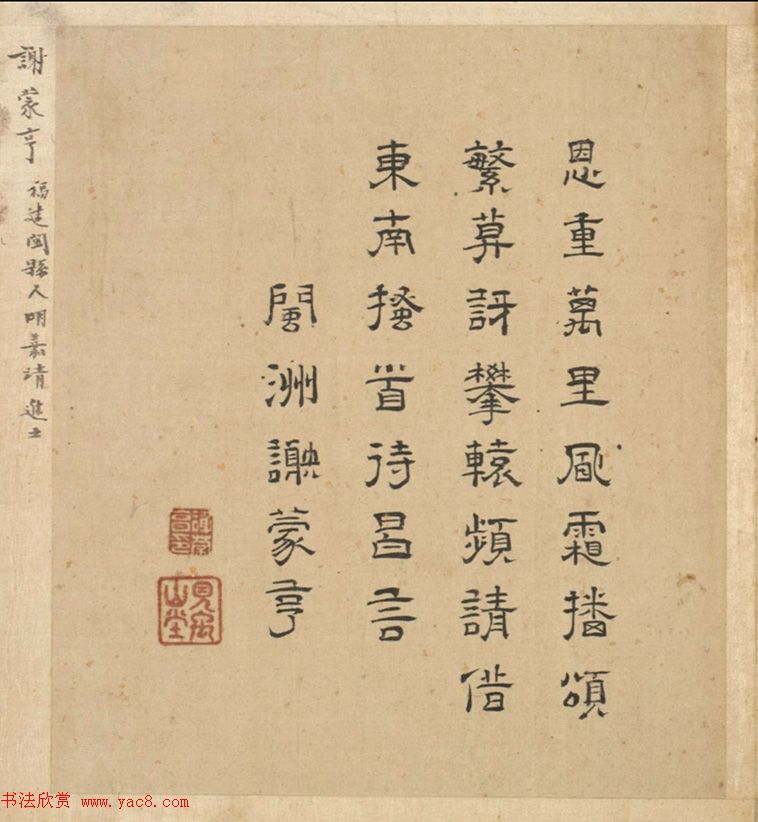 恩重萬里風霜播頌
繁莫訝攀轅頻請借
東南搔首待昌言
閩洲謝蒙亨
謝蒙亨 福建閩縣人明嘉靖進士
书法欣赏 www.yac8.com